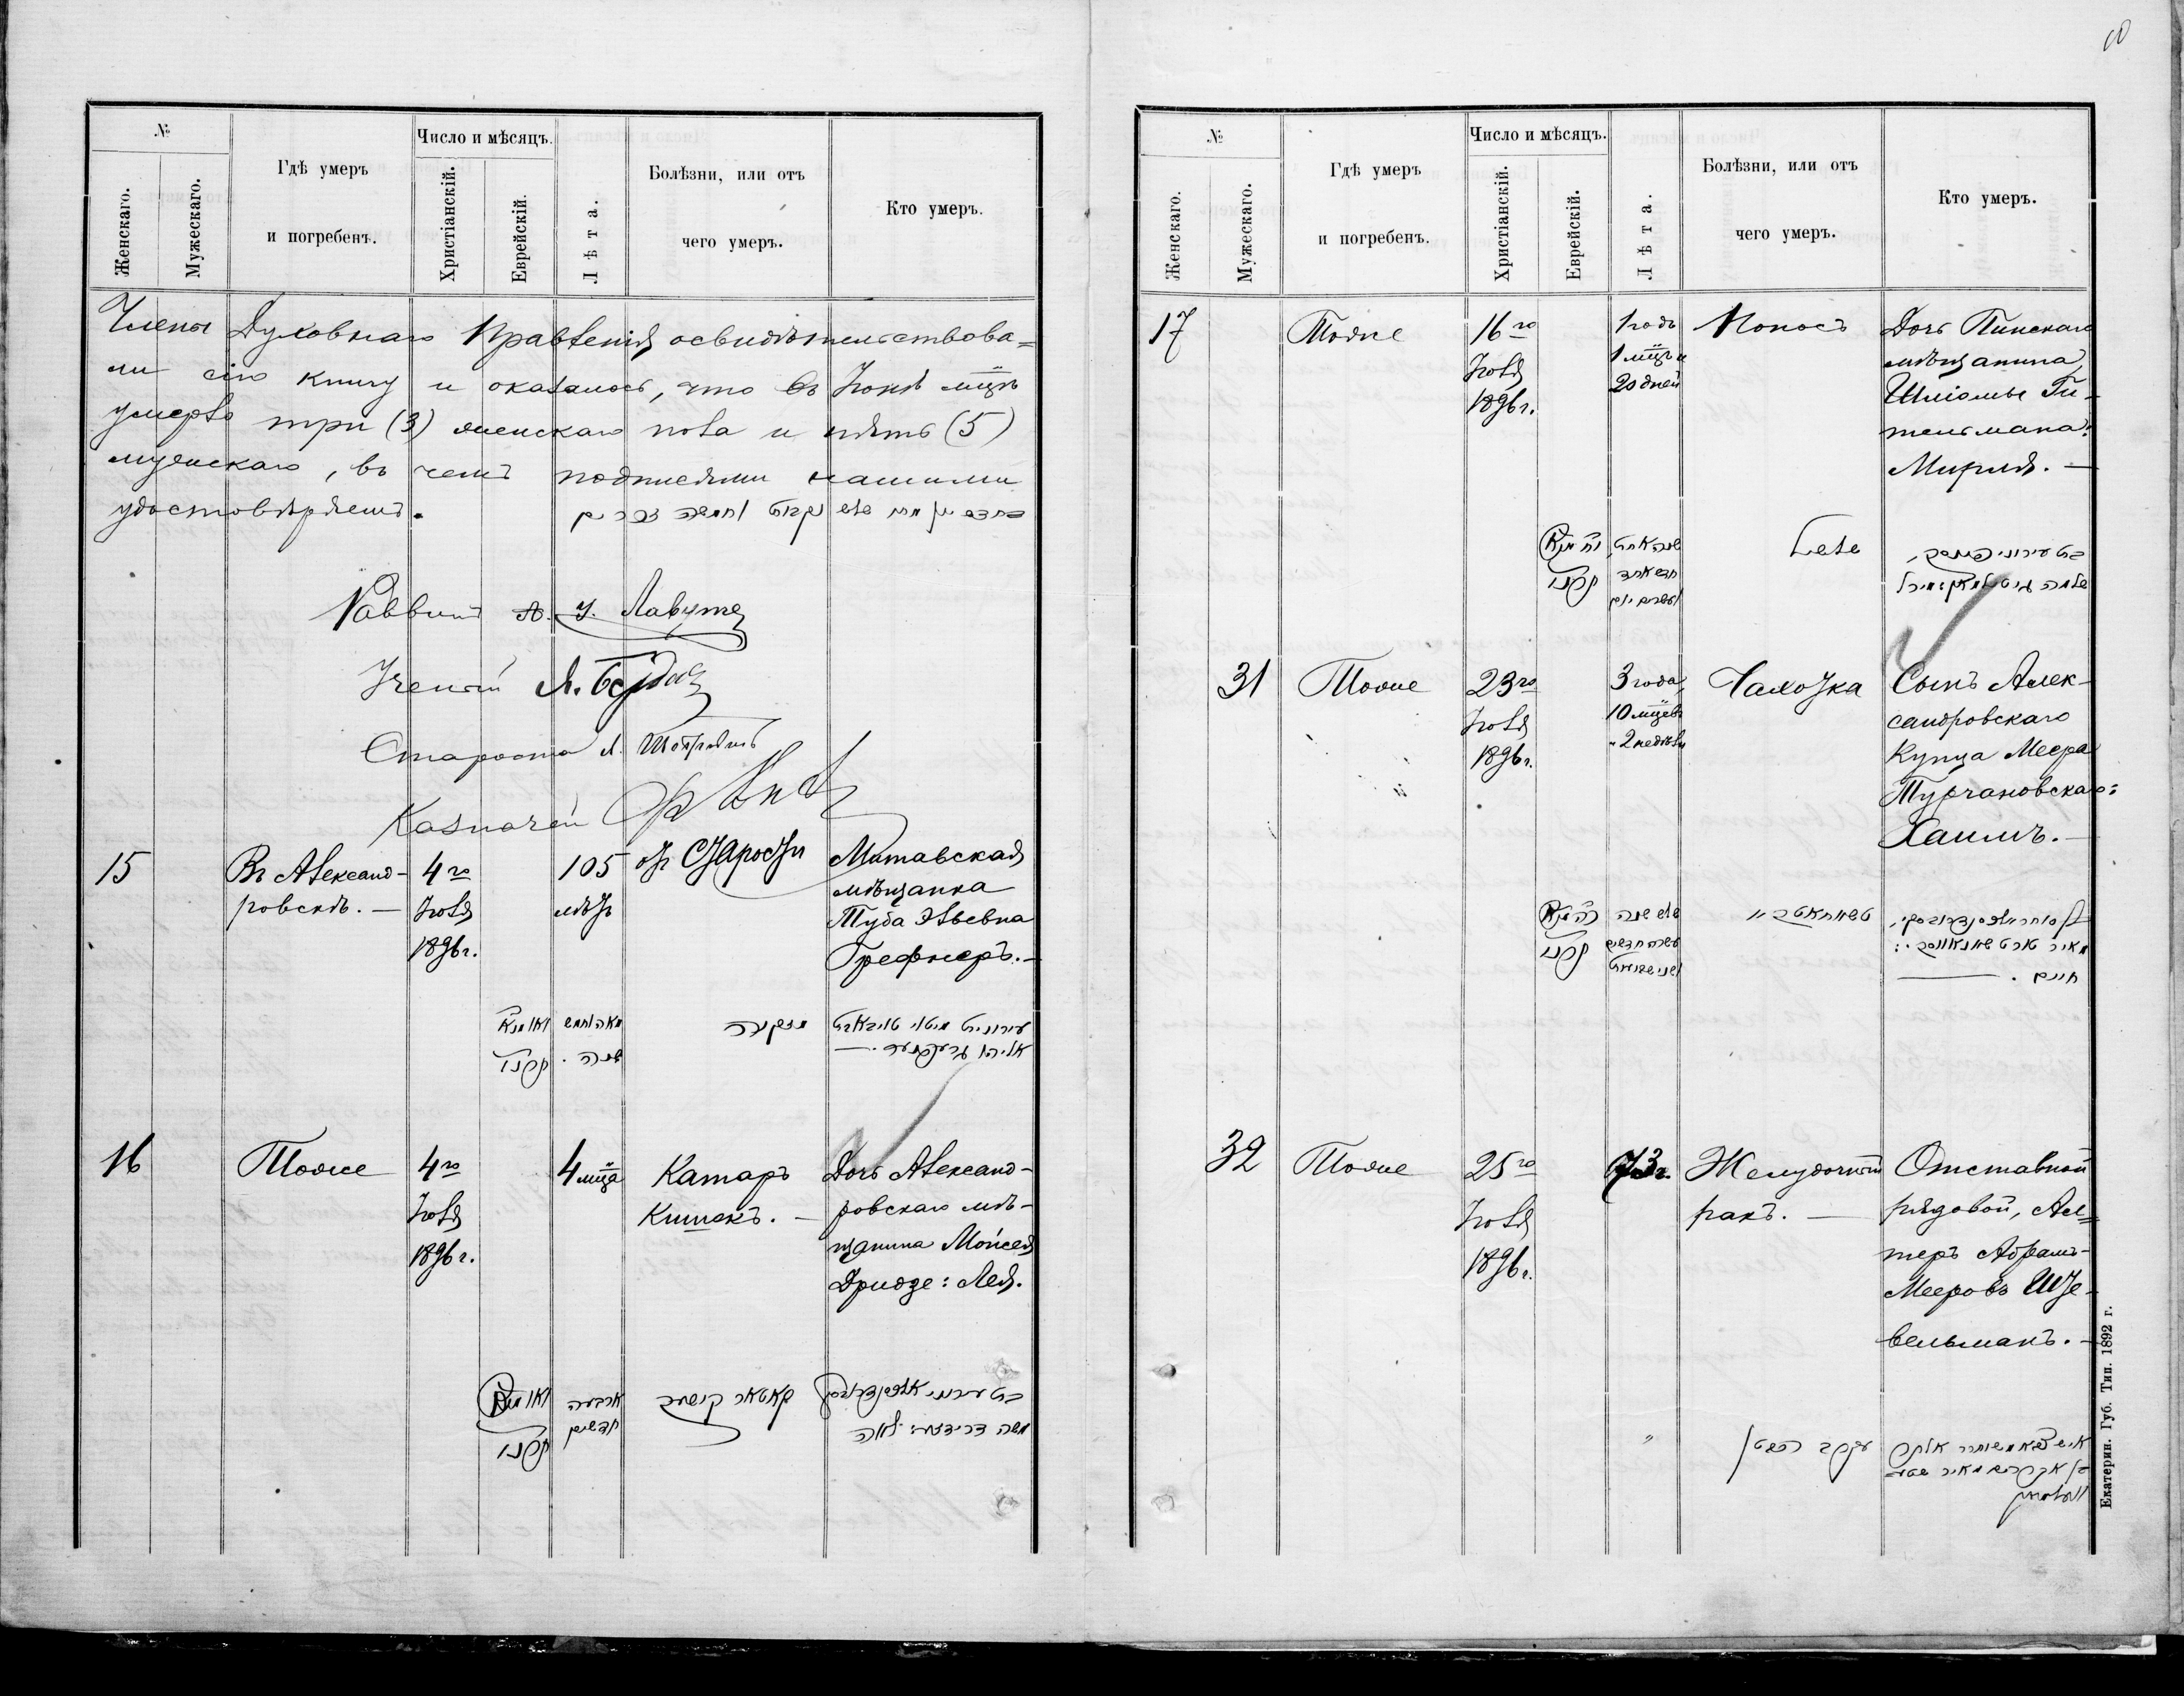 №
Женскаго.
Мужескаго.
Гдѣ умеръ
и погребенъ.
Число и мѣсяцъ.
Христіанскій.
Еврейскій.
Лѣта.
Болѣзни, или отъ
чего умеръ.
Кто умеръ.
Члены Духовнаго Правленія освидѣтельствова=
ли сію книгу и оказалось, что въ Іюнѣ мцѣ
умерло три (3) женскаго пола и пять (5)
мужескаго, въ чемъ подписями нашими
удостовѣряемъ.
Раввинъ А. У. Лавутъ
Ученый Л.
Староста Л.
Казначей
15
Въ Александ-
ровскѣ. —
4го
Іюля
1896 г.
105
лѣтъ
отъ старости
Митавская
мѣщанка
Туба Эльевна
Грефнеръ. —
תרנו
מאה וחמש
שנה .
מזקנה
16
Тоже
4го
Іюля
1896 г.
4 мца
Катаръ
Кишекъ. —
Дочь Александ-
ровскаго мѣ-
щанина Моисея
Дридзе: Лея.
תרנו
ארבעה
חדשים
קאטאר קישעק
משה דרידזע: לאה
№
Женскаго.
Мужескаго.
Гдѣ умеръ
и погребенъ.
Число и мѣсяцъ.
Христіанскій.
Еврейскій.
Лѣта.
Болѣзни, или отъ
чего умеръ.
Кто умеръ.
17
Тоже
16го
Іюля
1896 г.
1 годъ
1 мцъ и
20 дней
Поносъ
Дочь Пинскаго
мѣщанина
Шліомы Ги-
тельмана:
Мирля. —
תרנו
שנה אחת
חדש אחד
ועשרים יום
שלמה גיטלמאן: מירל
31
Тоже
23го
Іюля
1896 г.
3 года,
10 мцевъ
и 2 недѣли
Чахотка
Сынъ Алек-
сандровскаго
Купца Меера
Турчановскаго:
Хаимъ. —
תרנו
שלש שנה
עשרה חדשים
חיים . —
32
Тоже
25го
Іюля
1896 г.
73 г.
Желудочный
ракъ. —
Отставной
рядовой, Ал=
теръ Абрамъ-
Мееровъ Ште-
вельманъ. —
Екатерин. Губ. Тип. 1892 г.